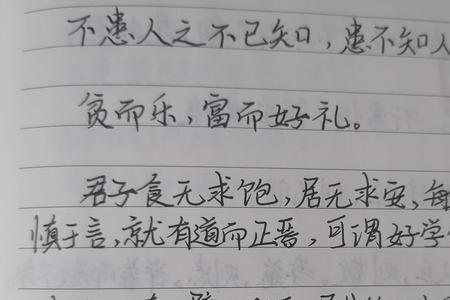 不患人之不已知，患不知人
贫而乐，富而好礼。
君子食无求饱，居无求安，
慎于言，就有道而正焉，可谓好学